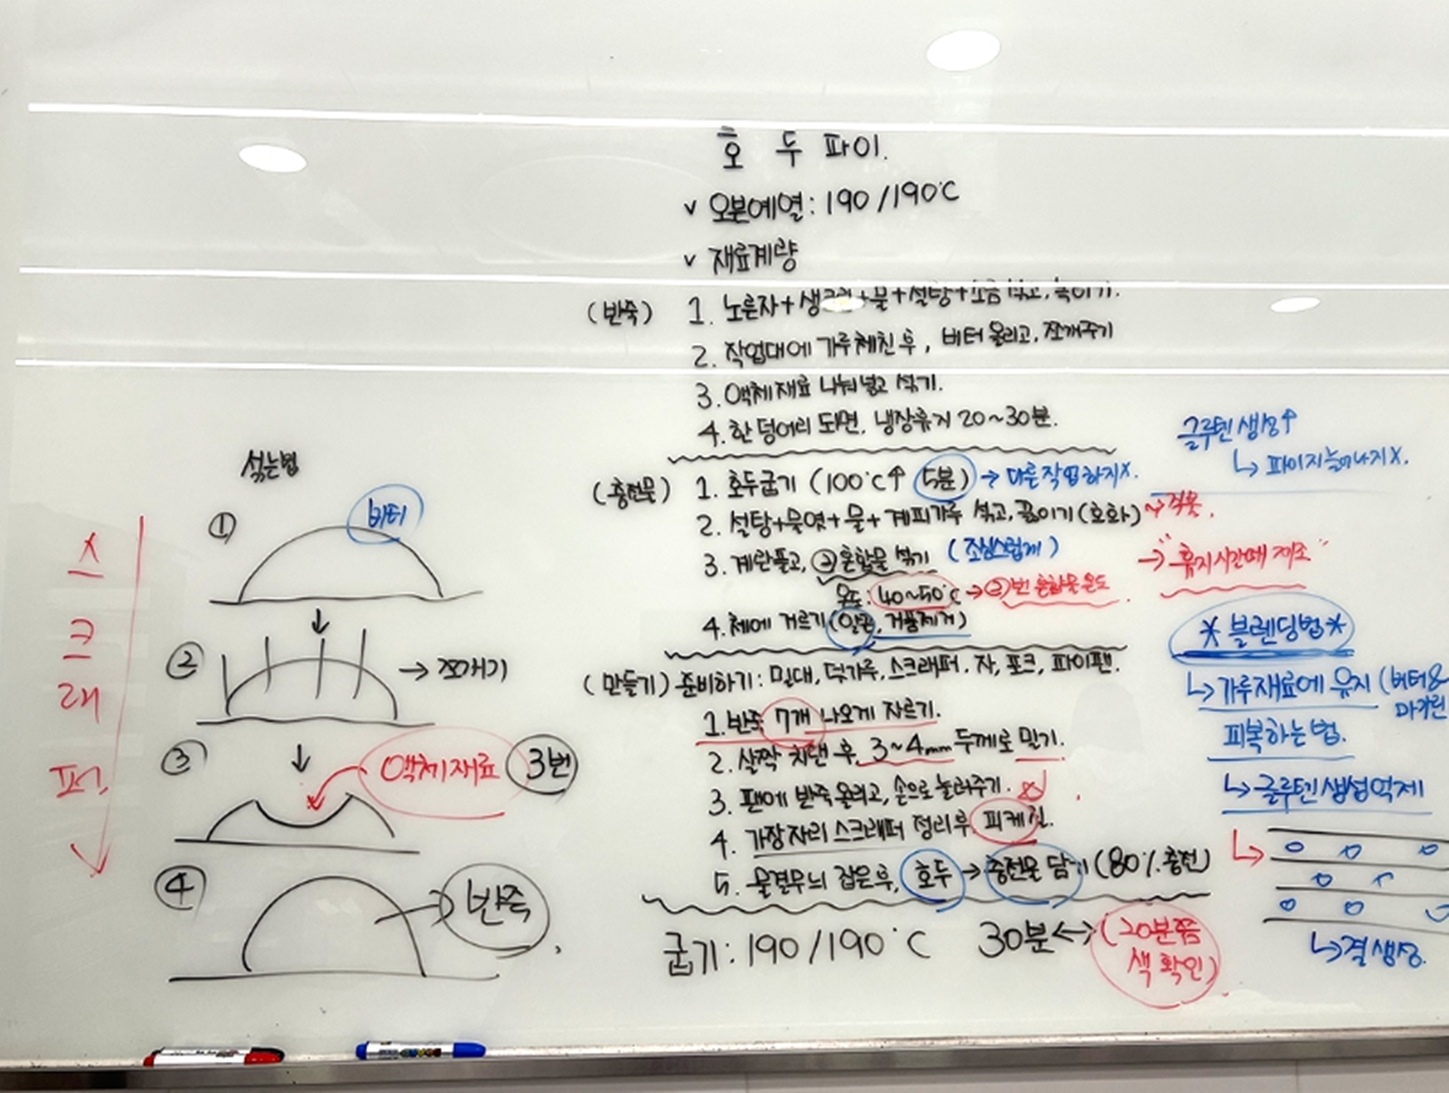 호 두 파이.
v 오븐예열: 190/190℃
v 재료계량
(반죽) 1. 노른자+생크림+물+설탕+소금 섞고, 녹이기.
2. 작업대에 가루체친 후, 버터 올리고, 쪼개주기
3. 액체재료 나눠넣고 섞기.
4. 한 덩어리 되면, 냉장휴지 20~30분.
글루텐 생성↑
↳ 파이지 늘어나지X.
(충전물) 1. 호두굽기 (100℃↑ 5분) → 다른작업하지X.
2. 설탕+물엿+물+계피가루 섞고, 끓이기(호화)
3. 계란풀고, ②혼합물 섞기 (조심스럽게)
온도: 40~50℃ → ②번 혼합물온도
→ "휴지시간때 제조"
4. 체에 거르기(알끈, 거품제거)
(만들기) 준비하기: 밀대, 덧가루, 스크래퍼, 자, 포크, 파이팬.
1. 반죽 7개 나오게 자르기.
2. 살짝 치댄 후, 3~4mm 두께로 밀기.
3. 팬에 반죽올리고, 손으로 눌러주기.
4. 가장자리 스크래퍼 정리후, 피케칠.
5. 물결무늬 잡은후, 호두 → 충전물 담기 (80% 충전)
굽기: 190/190℃ 30분 ↔ (20분쯤
색 확인)
*블렌딩법*
↳ 가루재료에 유지 (버터&
마가린
피복하는 법.
↳ 글루텐 생성억제
↳ 결생성.
섞는법
① 버터
② → 쪼개기
③ 액체재료 3번
④ 반죽
스
크
래
퍼